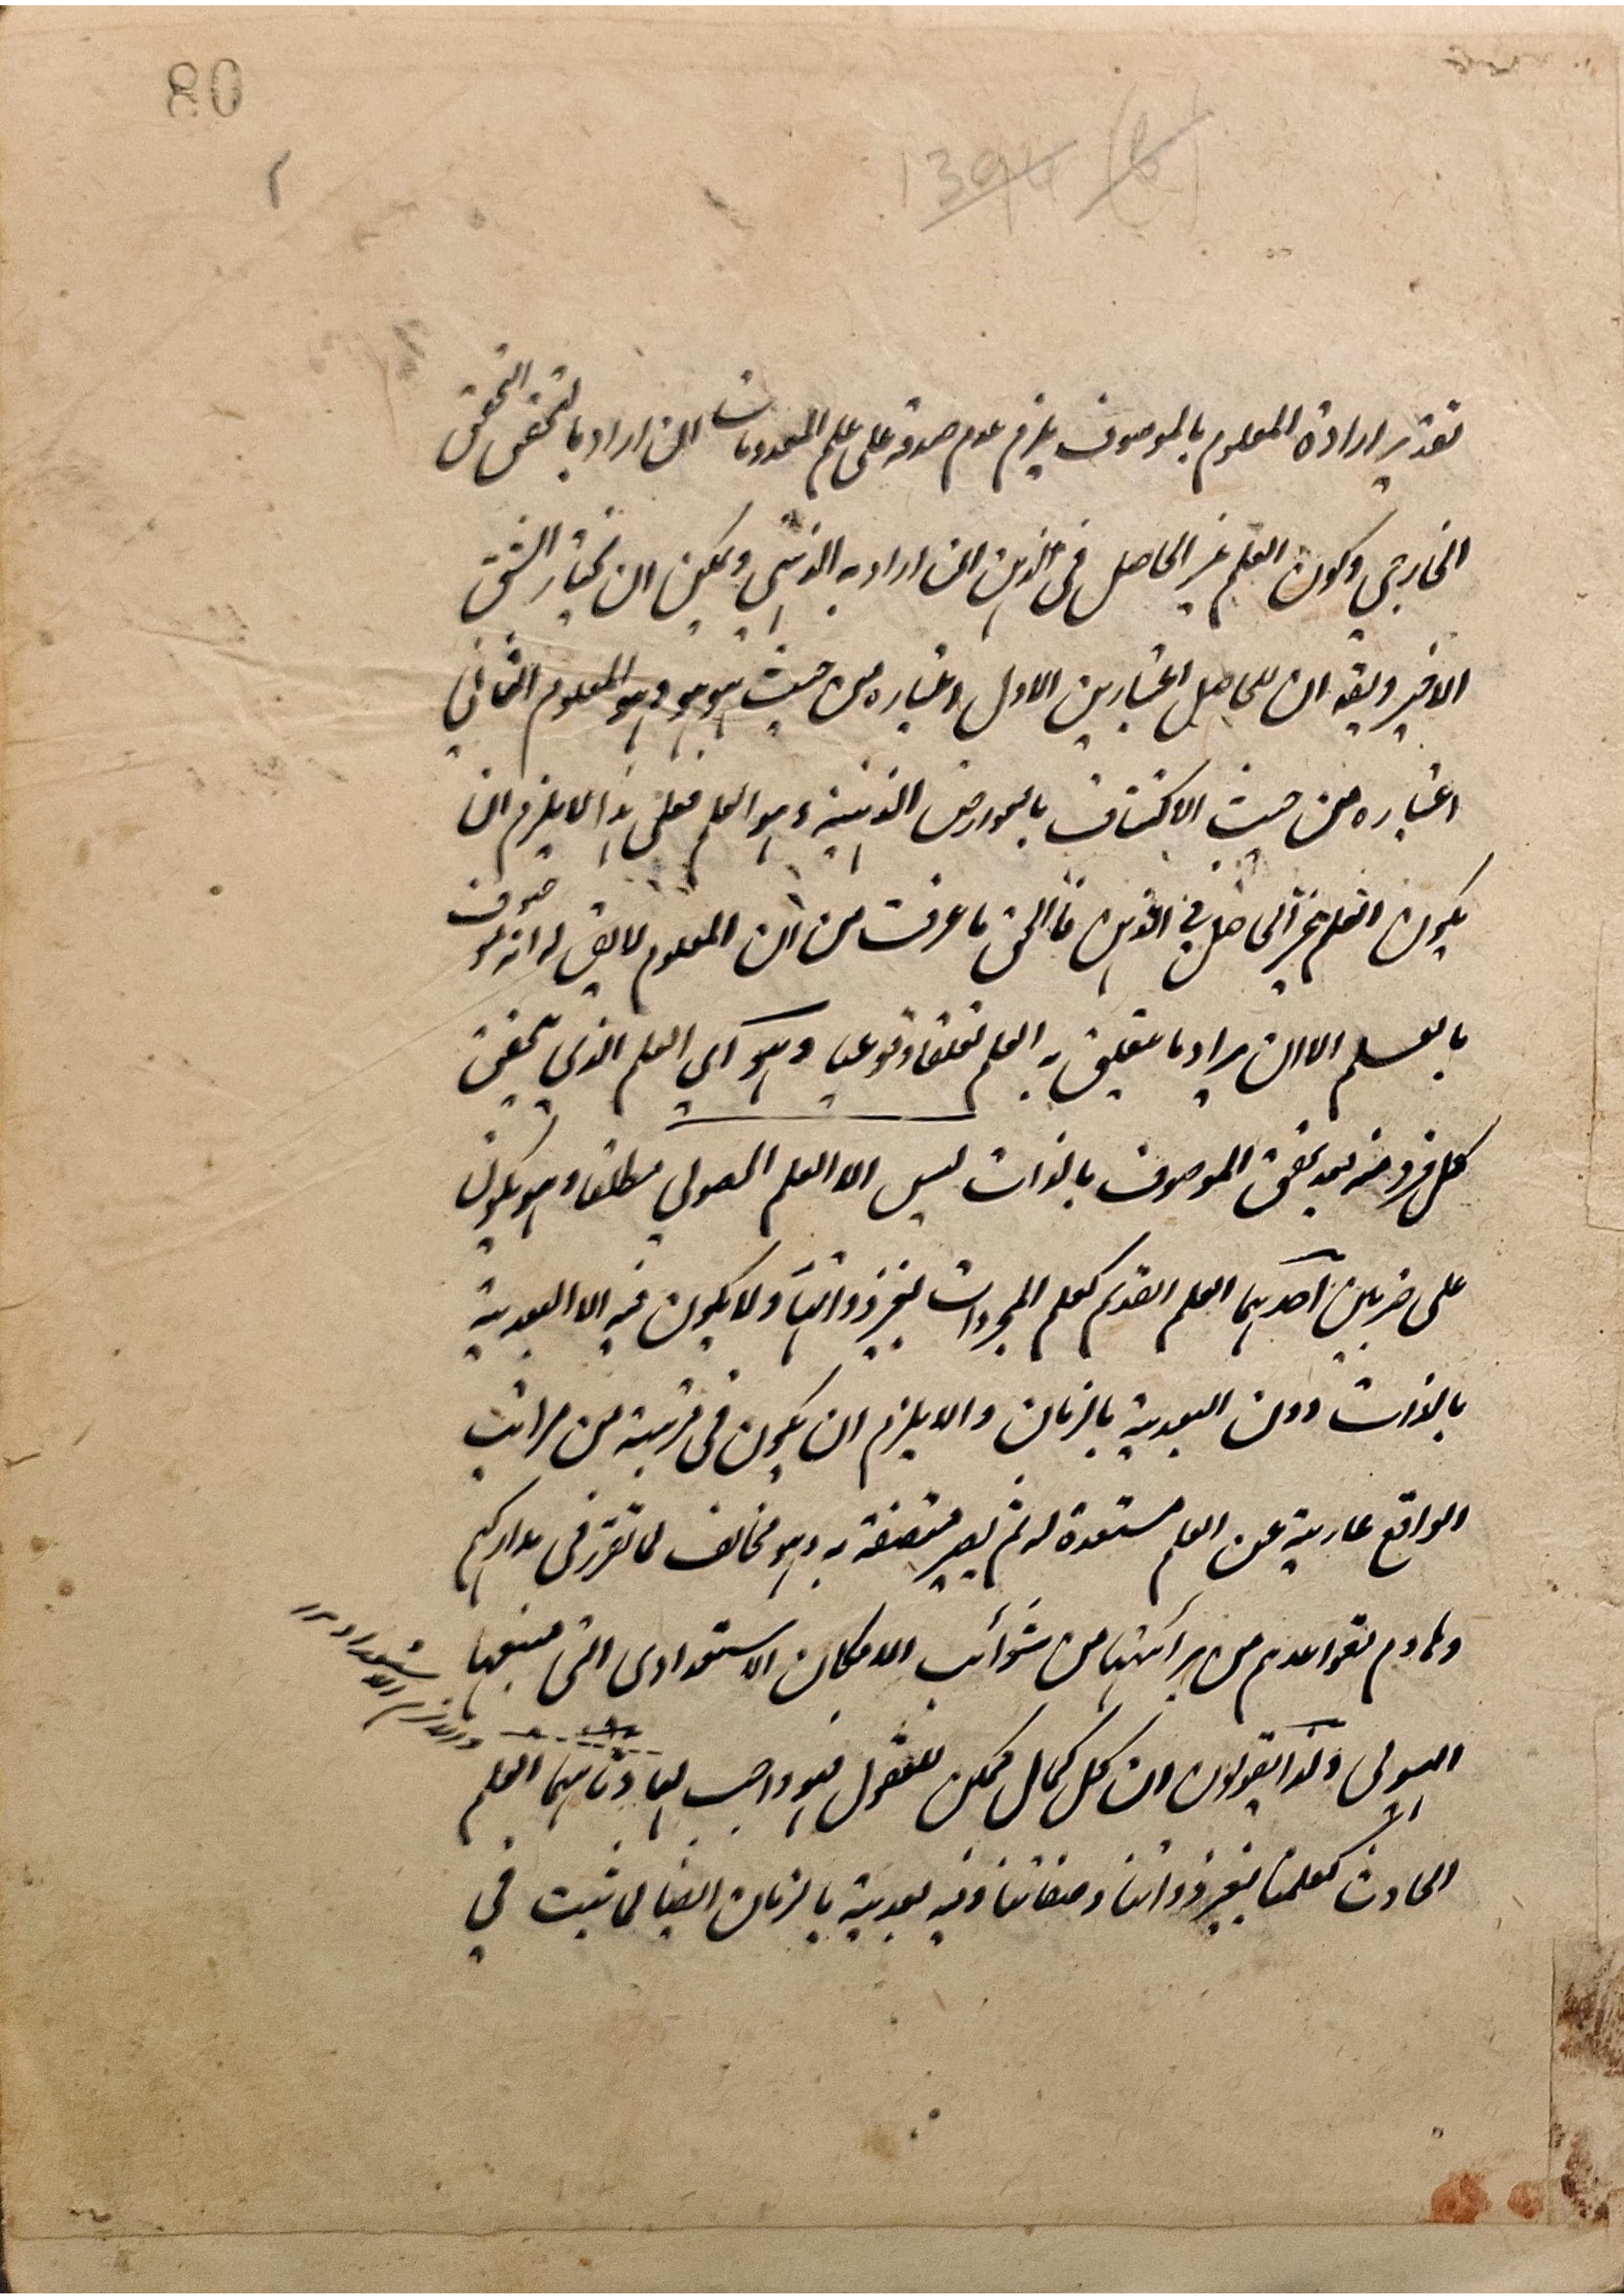 80
1394 (b)
تقدير ارادة المعلوم بالموصوف يلزم عدم صدقه على علم المعدومات ان اراد بالتحقق التحقق
الخارجي وكون العلم غير الحاصل في الذهن ان اراد به الذهني ويمكن ان نختار الشق
الاخير ويقه ان للحاصل اعتبارين الاول اعتباره من حيث هو هو وهو المعلوم الثاني
اعتباره من حيث الاكتناف بالعوارض الذهنية وهو العلم فعلى هذا لا يلزم ان
يكون العلم غير الحاصل في الذهن فالحق ما عرفت من ان المعلوم لا يق له انه موصوف
بالعلم الا ان يراد ما يتعلق به العلم تعلقا وقوعيا وهو اي العلم الذي يتحقق
كل فرد منه بعد تحقق الموصوف بالذات ليس الا العلم الحصولي مطلقا وهو يكون
على ضربين احدهما العلم القديم كعلم المجردات بغير ذواتها ولا يكون فيه الا البعدية
بالذات دون البعدية بالزمان والا يلزم ان يكون في مرتبة من مراتب
الواقع عارية عن العلم مستعدة له ثم يصير متصفة به وهو مخالف لما تقرر في مداركهم
وهادم لقواعدهم من برائتها من شوائب الامكان الاستعدادى التى منبعها
الهيولى ولذا يقولون ان كل كمال ممكن للعقول فهو واجب لها وثانيهما العلم
الحادث كعلمنا بغير ذواتنا وصفاتنا وفيه بعدية بالزمان ايضا لما ثبت في